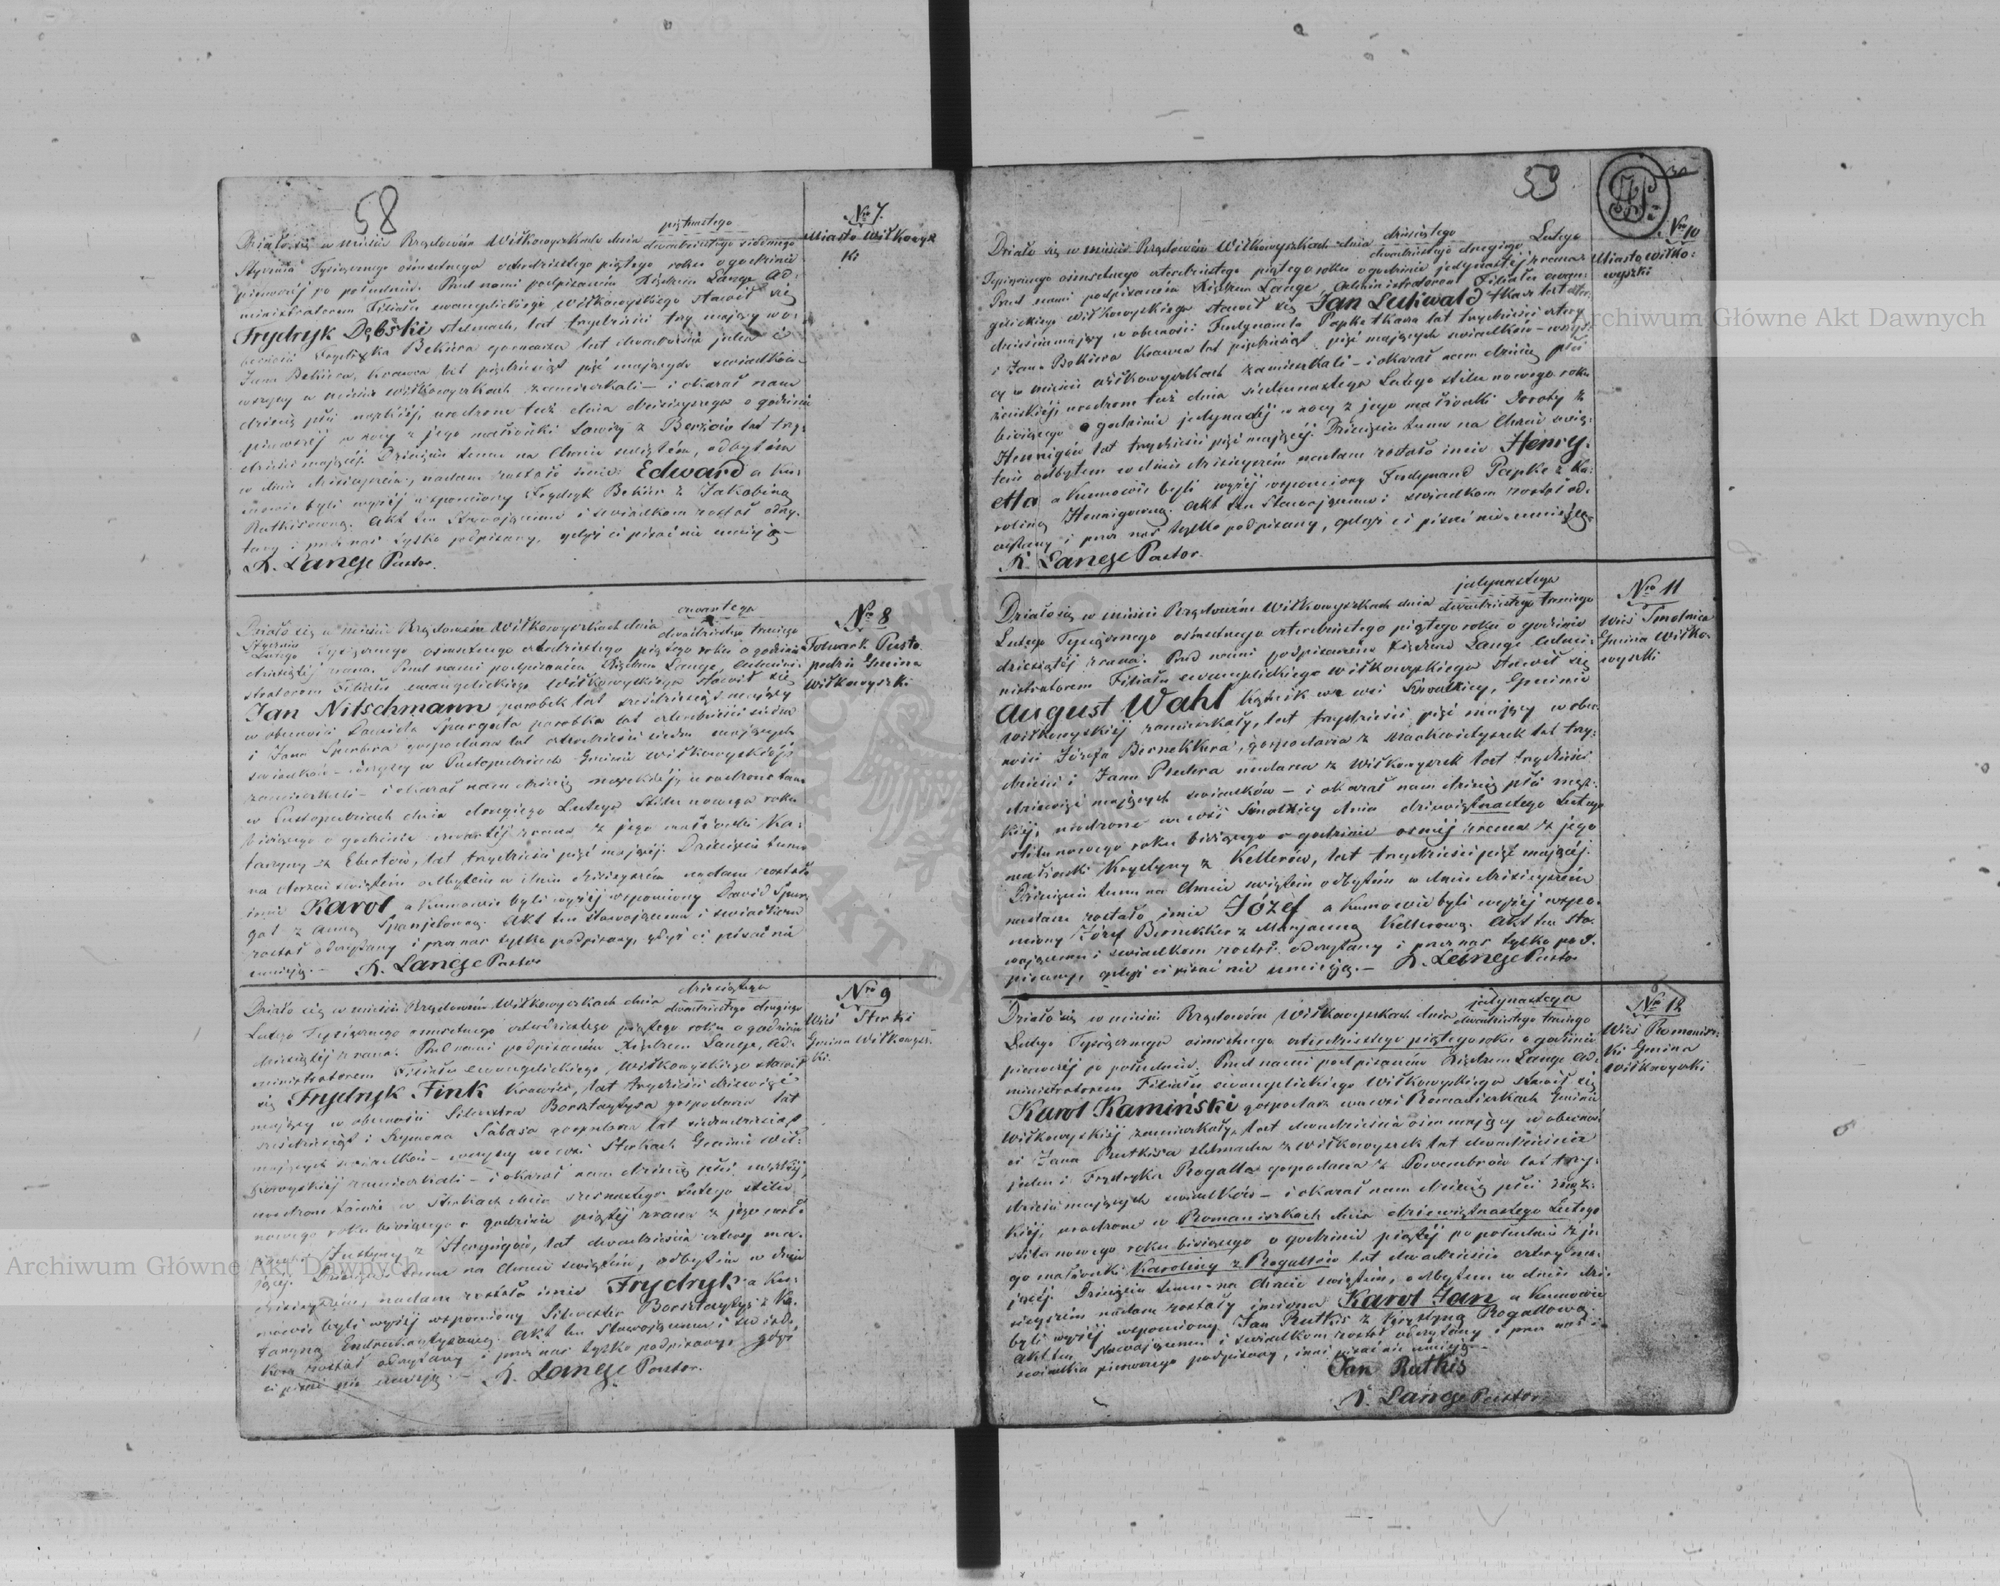 58
No 7.
Miasto Wiłkowysz
ki
piętnastego
Działo się w mieście Rządowém Wiłkowyszkach dnia dwudziestego siódmego
Stycznia Tysiącznego ośmsetnego czterdziestego piątego roku o godzinie
pierwszéj po południu. Przed nami podpisaném Xiędzem Lange Ad-
ministratorem Filiału ewangelickiego Wiłkowyskiego stawił się
Frydryk Dębski stelmach, lat trzydzieści trzy mający w o-
becności Frydryka Bekiera garncarza lat dwadzieścia jeden i
Jana Bekiera, krawca, lat piędziesiąt pięć mających świadków
wszyscy w mieście Wiłkowyszkach zamieszkali – i okazał nam
dziecię płci męzkiéj, urodzone tuż dnia dzisiejszego o godzinie
pierwszéj w nocy z jego małżonki Lowizy z lat trzy-
dzieści mającéj. Dziecięciu temu na Chrzcie świętém, odbytém
w dniu dzisiejszém, nadane zostało imie Edward a ku-
mowie byli wyżéj wspomniony Frydryk Bekier z Jakobiną
Rutkisówną. Akt ten Stawającemu i świadkom został odczy-
tany i przez nas tylko podpisany, gdyż ci pisać nie umieją –
Lange Pastor.
No 8
Folwark Pusto
pedzie Gmina
Wiłkowyszki
czwartego
Działo się w mieście Rządowém Wiłkowyszkach dnia dwudziestego trzeciego
Stycznia
Lutego Tysiącznego ośmsetnego czterdziestego piątego roku o godzinie
dziesiątéj zrana. Przed nami podpisaném Xiędzem Lange, Admini-
stratorem Filiału ewangelickiego Wiłkowyskiego stawił się
Jan Nitschmann parobek lat sześdziesiąt mający
w obecności Dawida Spurgata parobka lat czterdzieści siedm
i Jana gospodarza lat czterdzieści siedm mających
świadków – wszyscy w Pustopedziach Gminie Wiłkowyskiéj
zamieszkali – i okazał nam dziecię męzkiéj, urodzone tam
w Pustopedziach dnia drugiego Lutego Stilu nowego roku
bieżącego o godzinie czwartéj zrana z jego małżonki Ka-
tarzyny z Ebertów, lat trzydzieści pięć mającéj. Dziecięciu temu
na chrzcie świętém odbytém w dniu dzisiejszém nadane zostało
imie Karol a Kumowie byli wyżéj wspomniony Dawid Spur-
gat z Anną Spanjelówną. Akt ten stawającemu i świadkom
został odczytany i przez nas tylko podpisany, gdyż ci pisać nie
umieją. – Lange Pastor
No 9
Wieś Sterki
Gmina Wiłkowysz-
ki.
dziesiątego
Działo się w mieście Rządowém Wiłkowyszkach dnia dwudziestego drugiego
Lutego Tysiącznego ośmsetnego czterdziestego piątego roku o godzinie
dziesiątéj zrana. Przed nami podpisaném Xiędzem Lange, Ad-
ministratorem Filiału ewangelickiego Wiłkowyskiego stawił
się Frydryk Fink krawiec, lat trzydzieści dziewięć
mający w obecności Silvestra gospodarza lat
sześdziesiąt i Szymona Sabasa gospodarza lat siedmdziesiąt
mających świadków – wszyscy we wsi Sterkach Gminie Wił-
kowyskiéj zamieszkali – i okazał nam dziecię płci męzkiéj,
urodzone w Sterkach dnia szesnastego Lutego stilu
nowego roku bieżącego o godzinie piątéj zrana z jego małż-
onki Justyny z lat dwadzieścia cztery ma-
jącéj. Dziecięciu temu na chrzcie świętém, odbytém w dniu
dzisiejszém, nadane zostało imie Frydryk a Ku-
mowie byli wyżéj wspomniony Silvester z Ka-
tarzyną Akt ten Stawającemu i świad-
kom został odczytany i przez nas tylko podpisany, gdyż
ci pisać nie umieją – Lange Pastor.
59
No 10
Miasto Wiłko-
wyszki
dziesiątego
Działo się w mieście Rządowém Wiłkowyszkach dnia dwudziestego drugiego Lutego
Tysiącznego ośmsetnego czterdziestego piątego roku o godzinie jedynastéj zrana
Przed nami podpisaném Xiędzem Lange, Administratorem Filiału ewan-
gelickiego Wiłkowyskiego stawił się Jan Luhwald tkacz lat czter-
dzieści mający w obecności Ferdynanda Papke tkacza lat trzydzieści cztery
i Jana Bekiera krawca lat piędziesiąt pięć mających świadków – wszys-
cy w mieście Wiłkowyszkach zamieszkali – i okazał nam dziecię płci
żeńskiéj urodzone tuż dnia siedemnastego Lutego stilu nowego roku
bieżącego o godzinie jedynastéj w nocy z jego małżonki Doroty z
Hennigów lat trzydzieści pięć mającéj. Dziecięciu temu na Chrzcie świę-
tém odbytém w dniu dzisiejszém nadane zostało imie Henry-
etta a Kumowie byli wyżéj wspomniony Ferdynand Papke z Ka-
roliną Hennigówną. Akt ten Stawającemu i świadkom został od-
czytany i przez nas tylko podpisany, gdyż ci pisać nie umieją –
Lange Pastor.
No 11
Wieś Smolnica
Gmina Wiłko-
wyszki
jedynastego
Działo się w mieście Rządowém Wiłkowyszkach dnia dwudziestego trzeciego
Lutego Tysiącznego ośmsetnego czterdziestego piątego roku o godzinie
dziesiątéj zrana. Przed nami podpisaném Xiędzem Lange Admi-
nistratorem Filiału ewangelickiego Wiłkowyskiego stawił się
August Wahl we wsi Smolnicy, Gminie
Wiłkowyskiéj zamieszkały, lat trzydzieści pięć mający w obec-
ności Józefa Bernekkera, gospodarza z lat trzy-
dzieści i Jana z Wiłkowyszek lat trzydzieści
dziewięć mających świadków – i okazał nam dziecię płci męz-
kiéj, urodzone we wsi Smolnicy dnia dziewiętnastego Lutego
stilu nowego roku bieżącego o godzinie ósméj zrana z jego
małżonki Krystyny z Kellerów, lat trzydzieści pięć mającéj.
Dziecięciu temu na Chrzcie świętém odbytém w dniu dzisiejszém
nadane zostało imie Józef a Kumowie byli wyżéj wspo-
mniony Józef Bernekker z Maryanną Kellerówną. Akt ten sta-
wającemu i świadkom został odczytany i przez nas tylko pod-
pisany, gdyż ci pisać nie umieją. – Lange Pastor
No 12
Wieś Romanisz-
ki Gmina
Wiłkowyszki
jedynastego
Działo się w mieście Rządowém Wiłkowyszkach dnia dwudziestego trzeciego
Lutego Tysiącznego ośmsetnego czterdziestego piątego roku o godzinie
pierwszéj po południu. Przed nami podpisaném Xiędzem Lange Ad-
ministratorem Filiału ewangelickiego Wiłkowyskiego stawił się
Karol Kamiński gospodarz we wsi Romaniszkach Gminie
Wiłkowyskiéj zamieszkały, lat dwadzieścia ośm mający w obecnoś-
ci Jana Rutkisa stelmacha z Wiłkowyszek lat dwadzieścia
jeden i Frydryka Rogalla gospodarza z lat trzy-
dzieści mających świadków – i okazał nam dziecię płci męz-
kiéj, urodzone w Romaniszkach dnia dziewiętnastego Lutego
stilu nowego roku bieżącego o godzinie piątéj po południu z je-
go małżonki Karoliny z Rogallów lat dwadzieścia cztery ma-
jącéj. Dziecięciu temu na chrzcie świętém, odbytém w dniu dzi-
siejszém nadane zostały imiona Karol Jan a Kumowie
byli wyżéj wspomniony Jan Rutkis z Krystyną Rogallówną.
Akt ten Stawającemu i świadkom został odczytany i przez nas i
świadka pierwszego podpisany, inni pisać nie umieją –
Jan Rutkis
Lange Pastor
Archiwum Główne Akt Dawnych
Archiwum Główne Akt Dawnych